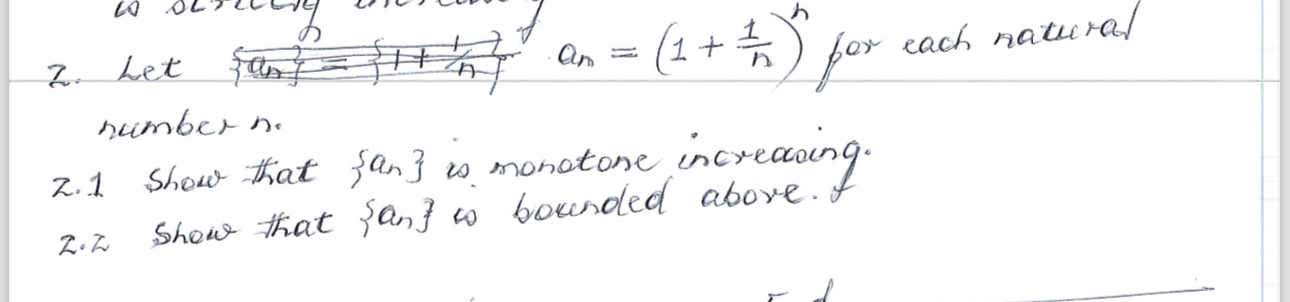 is strictly increasing
2. Let an = (1 + 1/n)^n for each natural
number n.
2.1 Show that {an} is monotone increasing.
2.2 Show that {an} is bounded above.